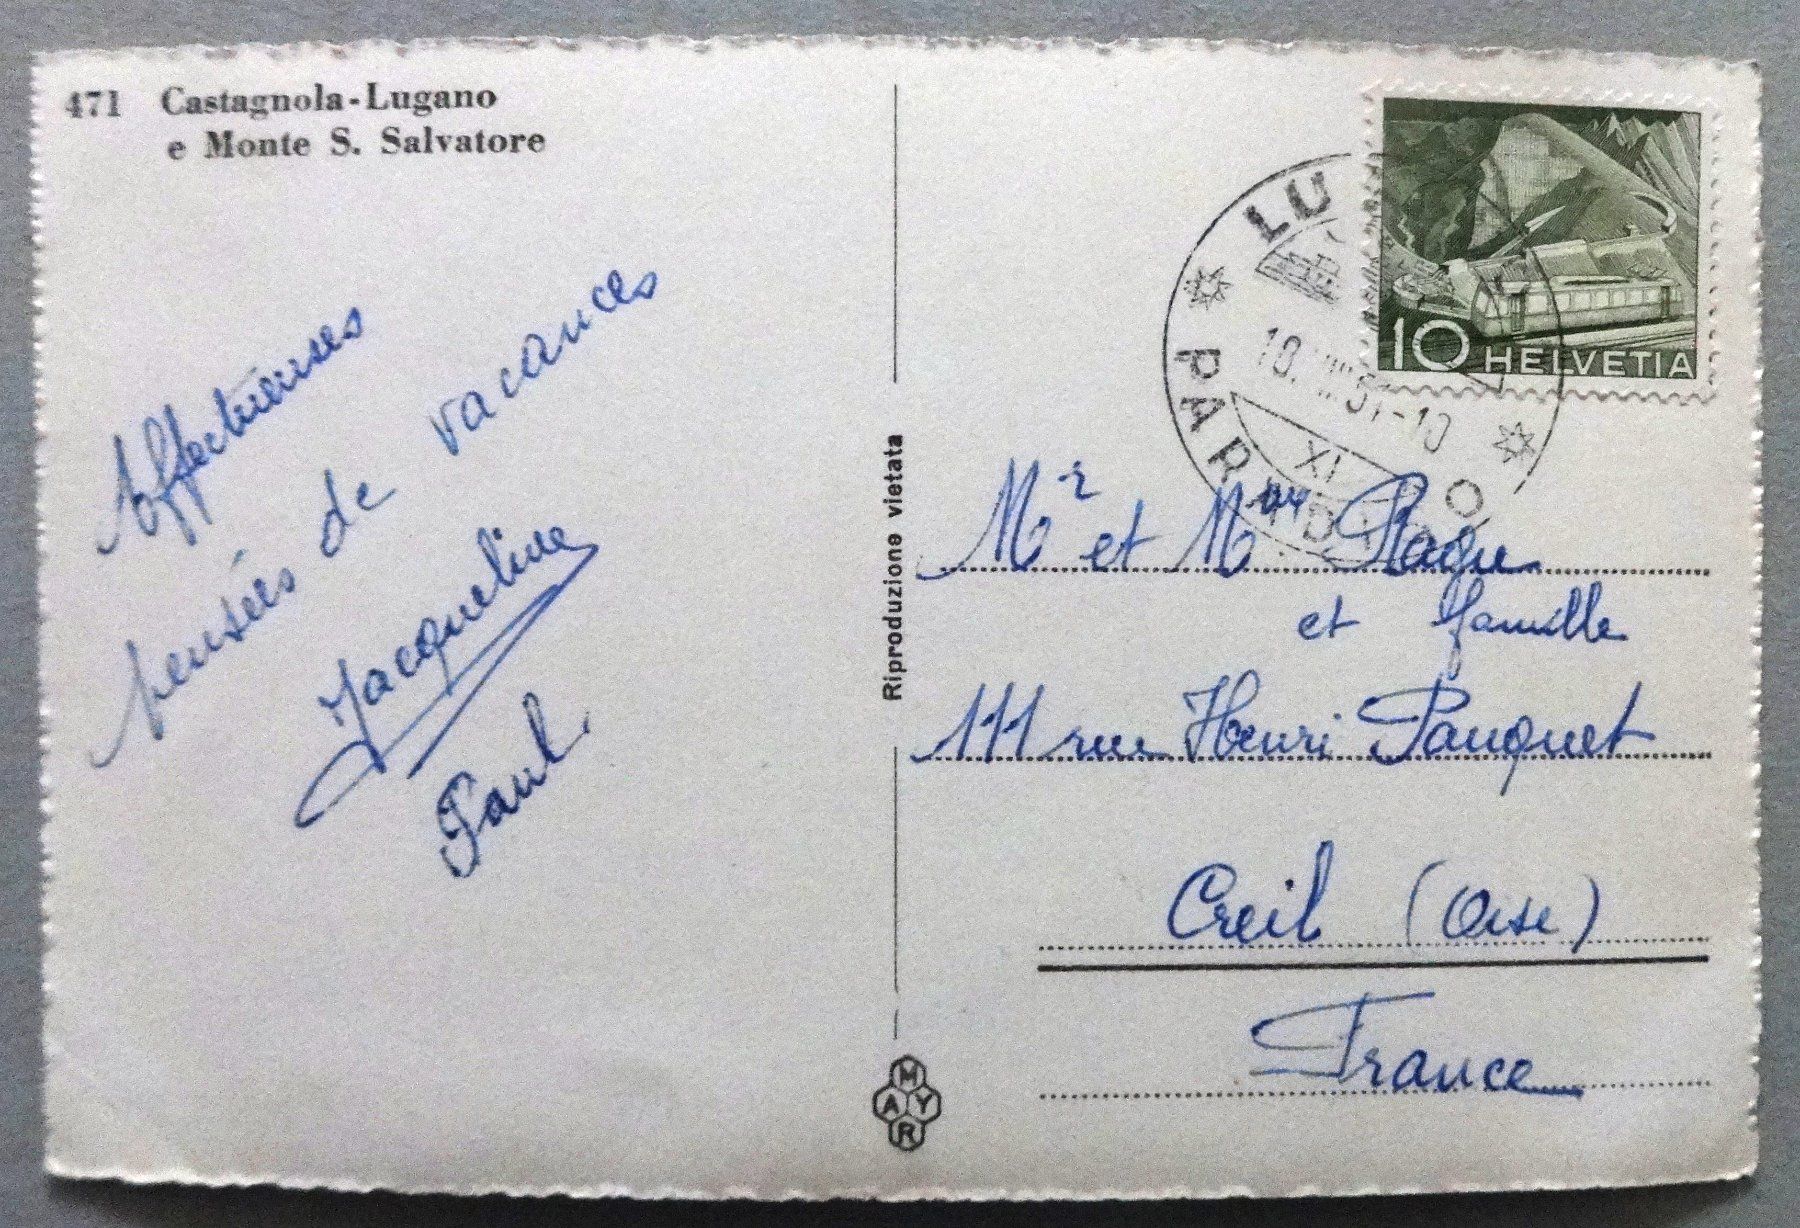 471 Castagnola-Lugano
e Monte S. Salvatore
Affectueuses
pensées de vacances
Jacqueline
Paul.
Riproduzione vietata
MAYR
10 HELVETIA
LU
PAR
XI
Mr et Mme
et famille
111 rue Henri Pauquet
Creil (Oise)
France